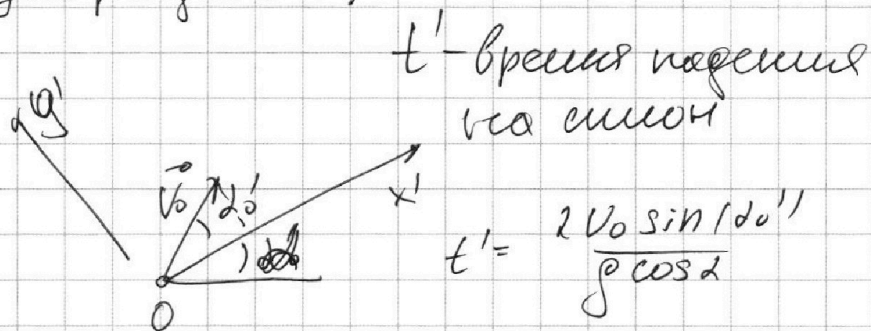 t' - время падения
на склон
y'
v₀
α₀'
x'
α
O
t' = 2 v₀ sin(α₀') / g cos α